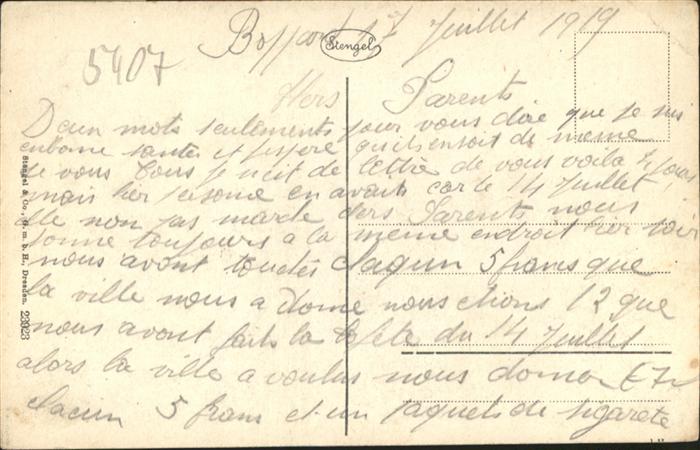 Boppart 17 Juillet 1919
Stengel
5407
Hers Parents
Deux mots seulements pour vous dire que je suis
enbonne santes et jespere quils ensoit de meme
de vous tous je recit de lettre de vous voila 4 jours
mais hier persone en avait car le 14 Juillet
elle non pas marche chers Parents nous
somme toujours a la meme endroit hier soir
nous avont touches chaqun 5 frans que
la ville nous a done nous etions 12 que
nous avont faits la fete du 14 Juillet
alors la ville a voulus nous donner
chacun 5 frans et un paquets de sigarete
Stengel & Co., G. m. b. H., Dresden. 23923